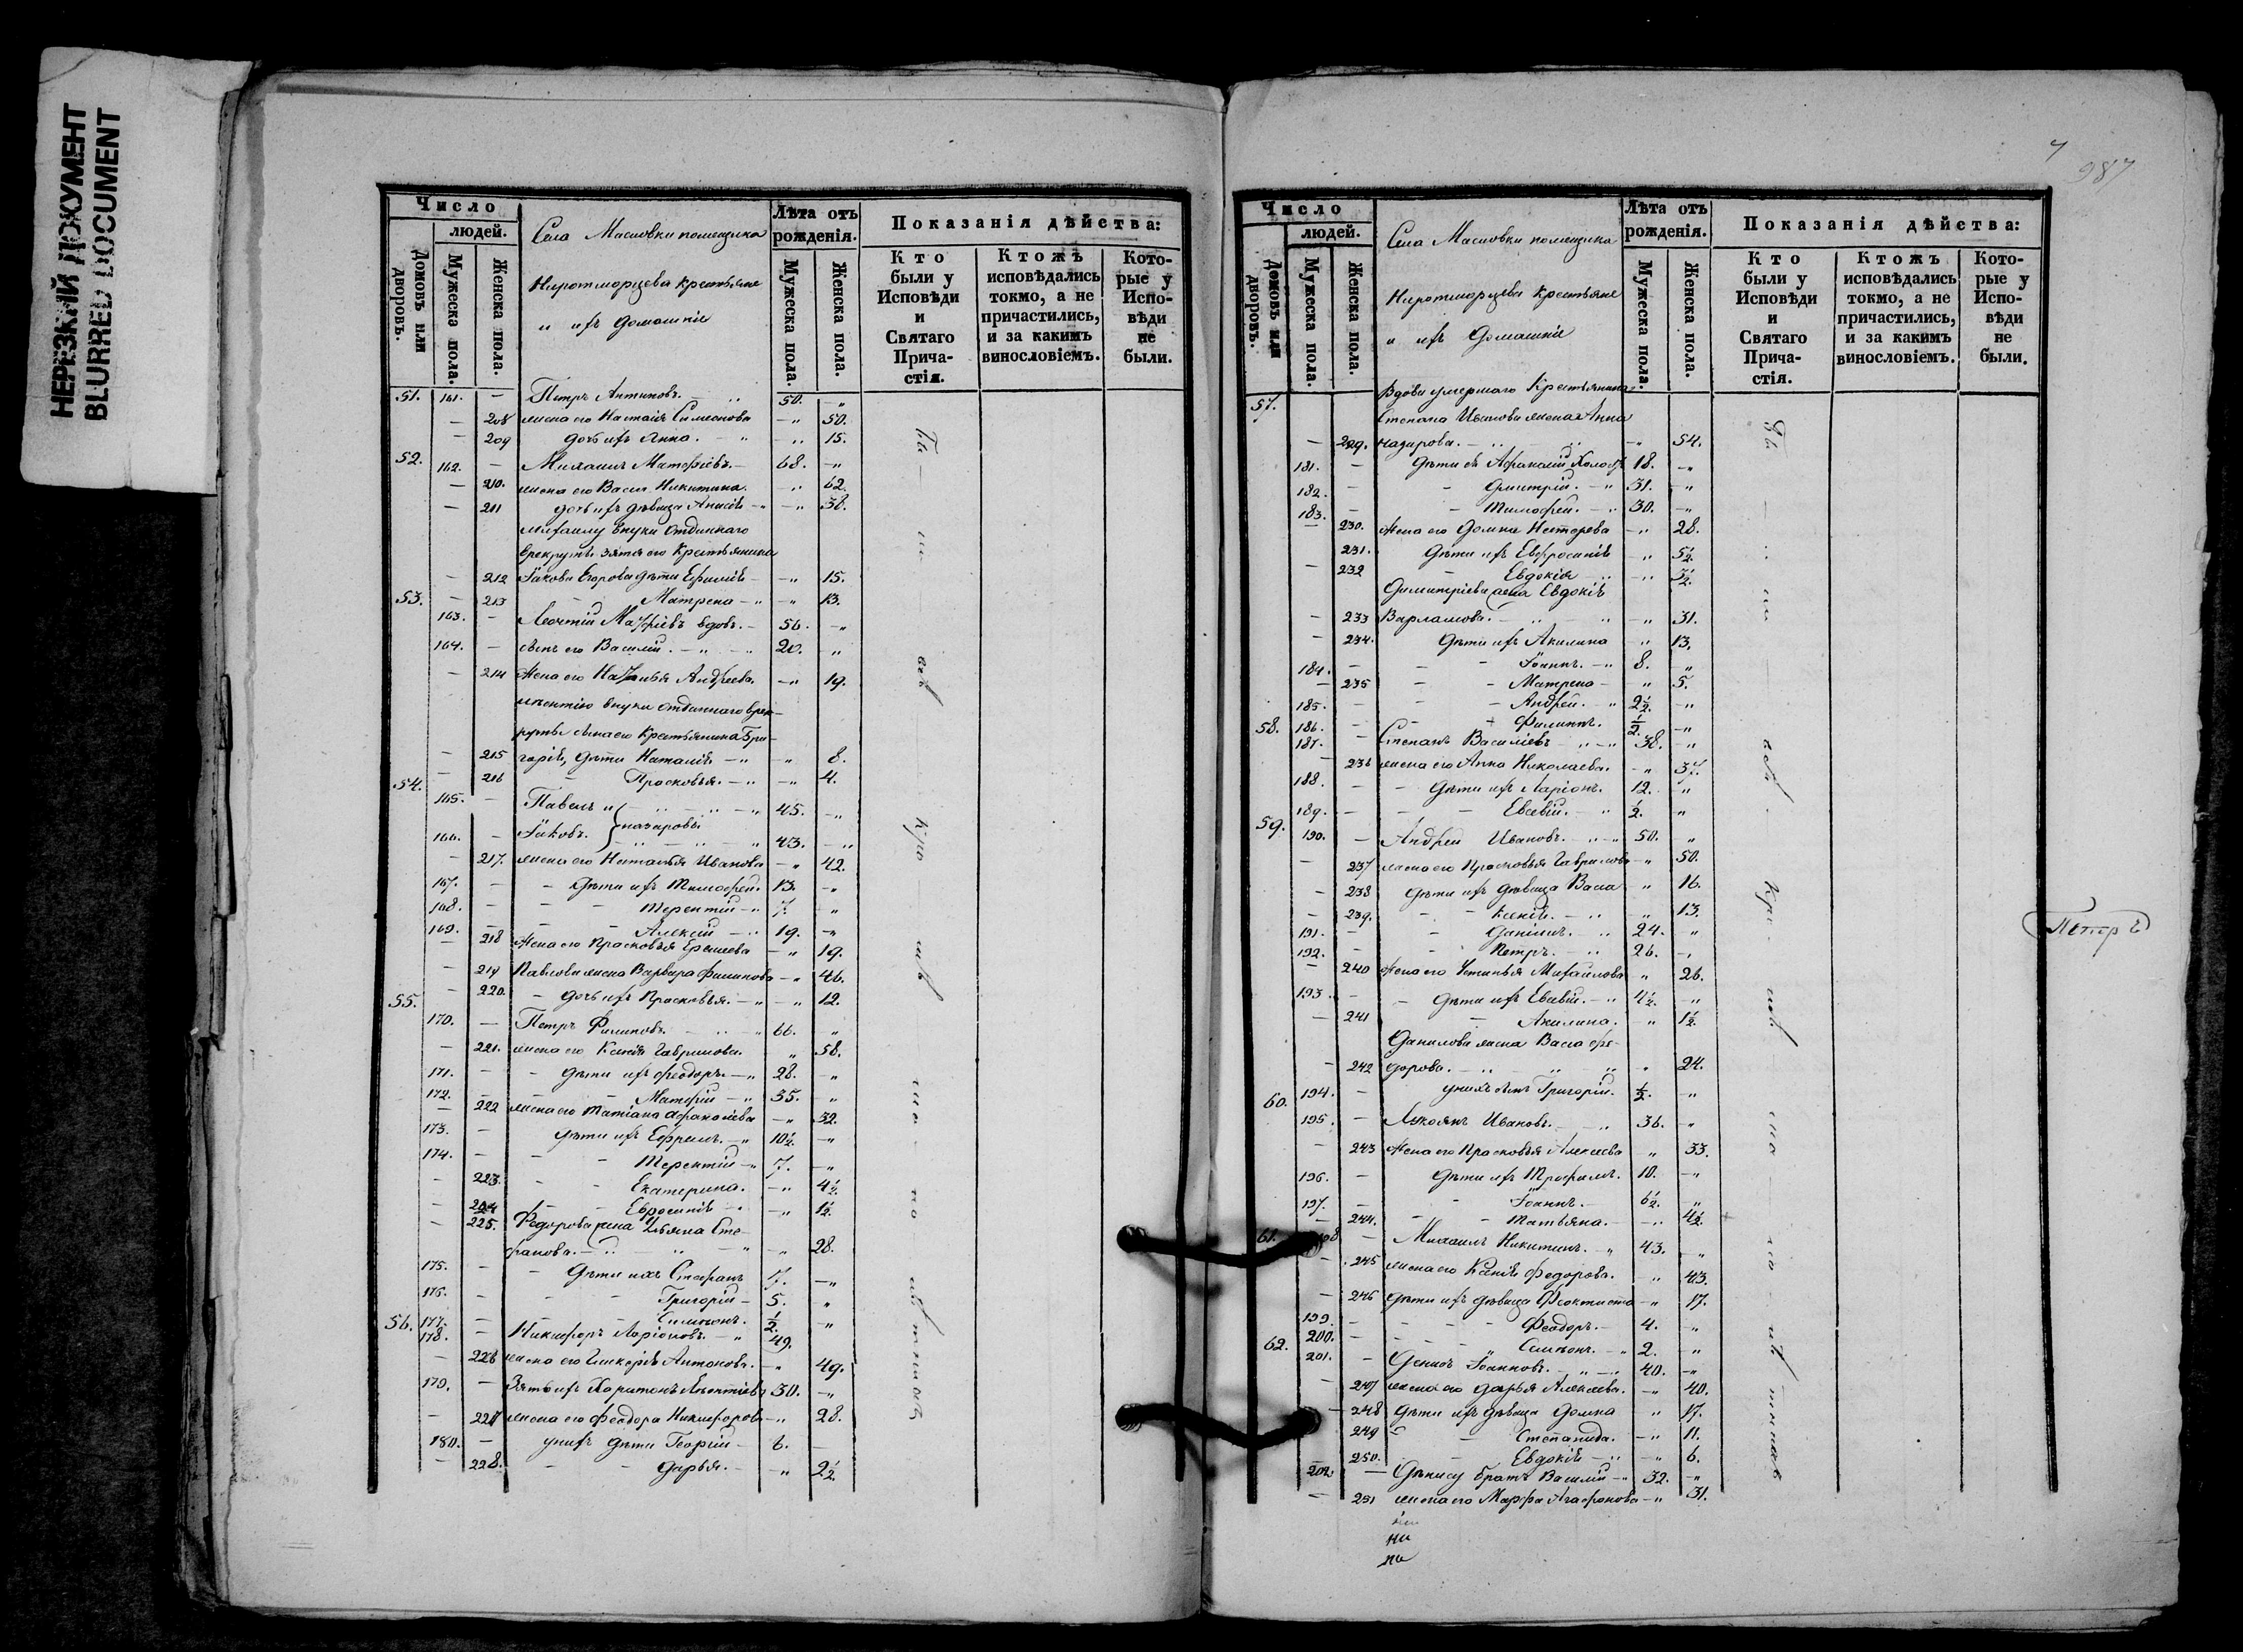 НЕРЕЗКИЙ ДОКУМЕНТ
BLURRED DOCUMENT
Число
людей.
Домовъ или дворовъ.
Мужеска пола.
Женска пола.
Села Масловки помещика
крестьяне
и ихъ домашніе
Лѣта отъ рожденія.
Мужеска пола.
Женска пола.
Показанія дѣйства:
Кто были у Исповѣди и Святаго Причастія.
Ктожъ исповѣдались токмо, а не причастились, и за какимъ винословіемъ.
Которые у Исповѣди не были.
51. 161. — Петръ Антиповъ. 50.
— 208 жена его Наталія Симеонова 50.
— 209 дочь ихъ Анна. 15.
52. 162. — Михаилъ Матфіевъ. 68.
— 210. жена его Васса Никитина. 62.
— 211 дочь ихъ дѣвица Анисія 38.
Михаилу внуки отданнаго
врекруты зятя его Крестьянина
— 212 Іакова Егорова дѣти Ефимія 15.
53. — 213 Матрена 13.
163. — Леонтій Матфіевъ вдовъ. 56.
164. — сынъ его Василій. 20.
— 214 Жена его Наталья Андреева. 19.
Леонтію внуки отданнаго врек-
руты сына его Крестьянина Гри-
— 215 горія, дѣти Наталія 8.
54. — 216 Прасковья. 4.
165. — Павелъ и 45.
назаровы
166. — Іаковъ. 43.
— 217. жена его Наталья Иванова 42.
167. — дѣти ихъ Тимофей. 13.
168. — Терентій 7.
169. — Алексій 19.
— 218 Жена его Прасковья 19.
— 219 Павлова жена Варвара Филипова 46.
55. — 220. дочь ихъ Прасковья. 12.
170. — Петръ Филиповъ. 66.
— 221. жена его Ксенія Гаврилова. 58.
171. — дѣти ихъ Феодоръ. 28.
172. — Матфій 35.
— 222 жена его Татіана Афанасіева 32.
173. — дѣти ихъ Ефремъ. 10½.
174. — Терентій 7.
— 223. Екатерина. 4½
— 224 Евросинія 1½
— 225. Федорова жена Ульяна Сте-
фанова. 28.
175. — дѣти ихъ Стефанъ 7.
176. — Григорій 5.
56. 177. — Симеонъ. ½
178. — Никифоръ Ларіоновъ. 49.
— 226 жена его Гликерія Антонова. 49.
179. — Зять ихъ Харитонъ Леонтіевъ 30.
— 227 жена его Феодора Никифорова 28.
180. — у нихъ дѣти Георгій 6.
— 228. Дарья. 2½
987
Число
людей.
Домовъ или дворовъ.
Мужеска пола.
Женска пола.
Села Масловки помещика
Крестьяне
и ихъ Домашніе
Лѣта отъ рожденія.
Мужеска пола.
Женска пола.
Показанія дѣйства:
Кто были у Исповѣди и Святаго Причастія.
Ктожъ исповѣдались токмо, а не причастились, и за какимъ винословіемъ.
Которые у Исповѣди не были.
57. Вдова умершаго Крестьянина
Степана Иванова жена Анна
— 229. назарова. 54.
181. — дѣти ея Афанасій 18.
182. — Димитрій. 31.
183. — Тимофей. 30.
— 230. Жена его Домна Несторева 28.
231. дѣти ихъ Евфросинія 5½
— 232 Евдокія 3½
Димитріева жена Евдокія
— 233 Варламова. 31.
— 234. дѣти ихъ Акилина 13.
184. — Іоаннъ. 8.
— 235 Матрена 5.
185. — Андрей. 2½
58. 186. — Филиппъ. ½
187. — Степанъ Василіевъ 38.
— 236 жена его Анна Николаева. 37.
188. — дѣти ихъ Ларіонъ. 12.
189. — Евсевій. ½
59. 190. — Андрей Ивановъ. 50.
— 237 жена его Прасковья Гаврилова 50.
— 238 дѣти ихъ дѣвица Васса 16.
— 239. Ксенія. 13.
191. — Даніилъ. 24.
192. — Петръ. 26.
— 240 Жена его Устинья Михайлова 26.
193. — дѣти ихъ Евсевій. 4½
— 241 Акилина. 1½
Данилова жена Васса Фе-
— 242 дорова. 24.
60. 194. — у нихъ сынъ Григорій. ½
195. — Лукіянъ Ивановъ. 36.
— 243 Жена его Прасковья Алексеева 33.
196. — дѣти ихъ Трофимъ. 10.
197. — Іоаннъ. 6½
— 244. Татьяна. 4½
61. Михаилъ Никитинъ. 43.
— 245 жена его Ксенія Федорова. 43.
— 246 дѣти ихъ дѣвица Феоктиста 17.
199. — Феодоръ. 4.
62. 200. — Симеонъ. 2.
201. — Денисъ Іоанновъ. 40.
— 247 жена его Дарья Алексеева. 40.
— 248 дѣти ихъ дѣвица Домна 17.
249 Степанида. 11.
250. Евдокія 6.
202. — Денису братъ Василій 32.
— 251 жена его Марфа Агафонова 31.
Петръ
ни
ни